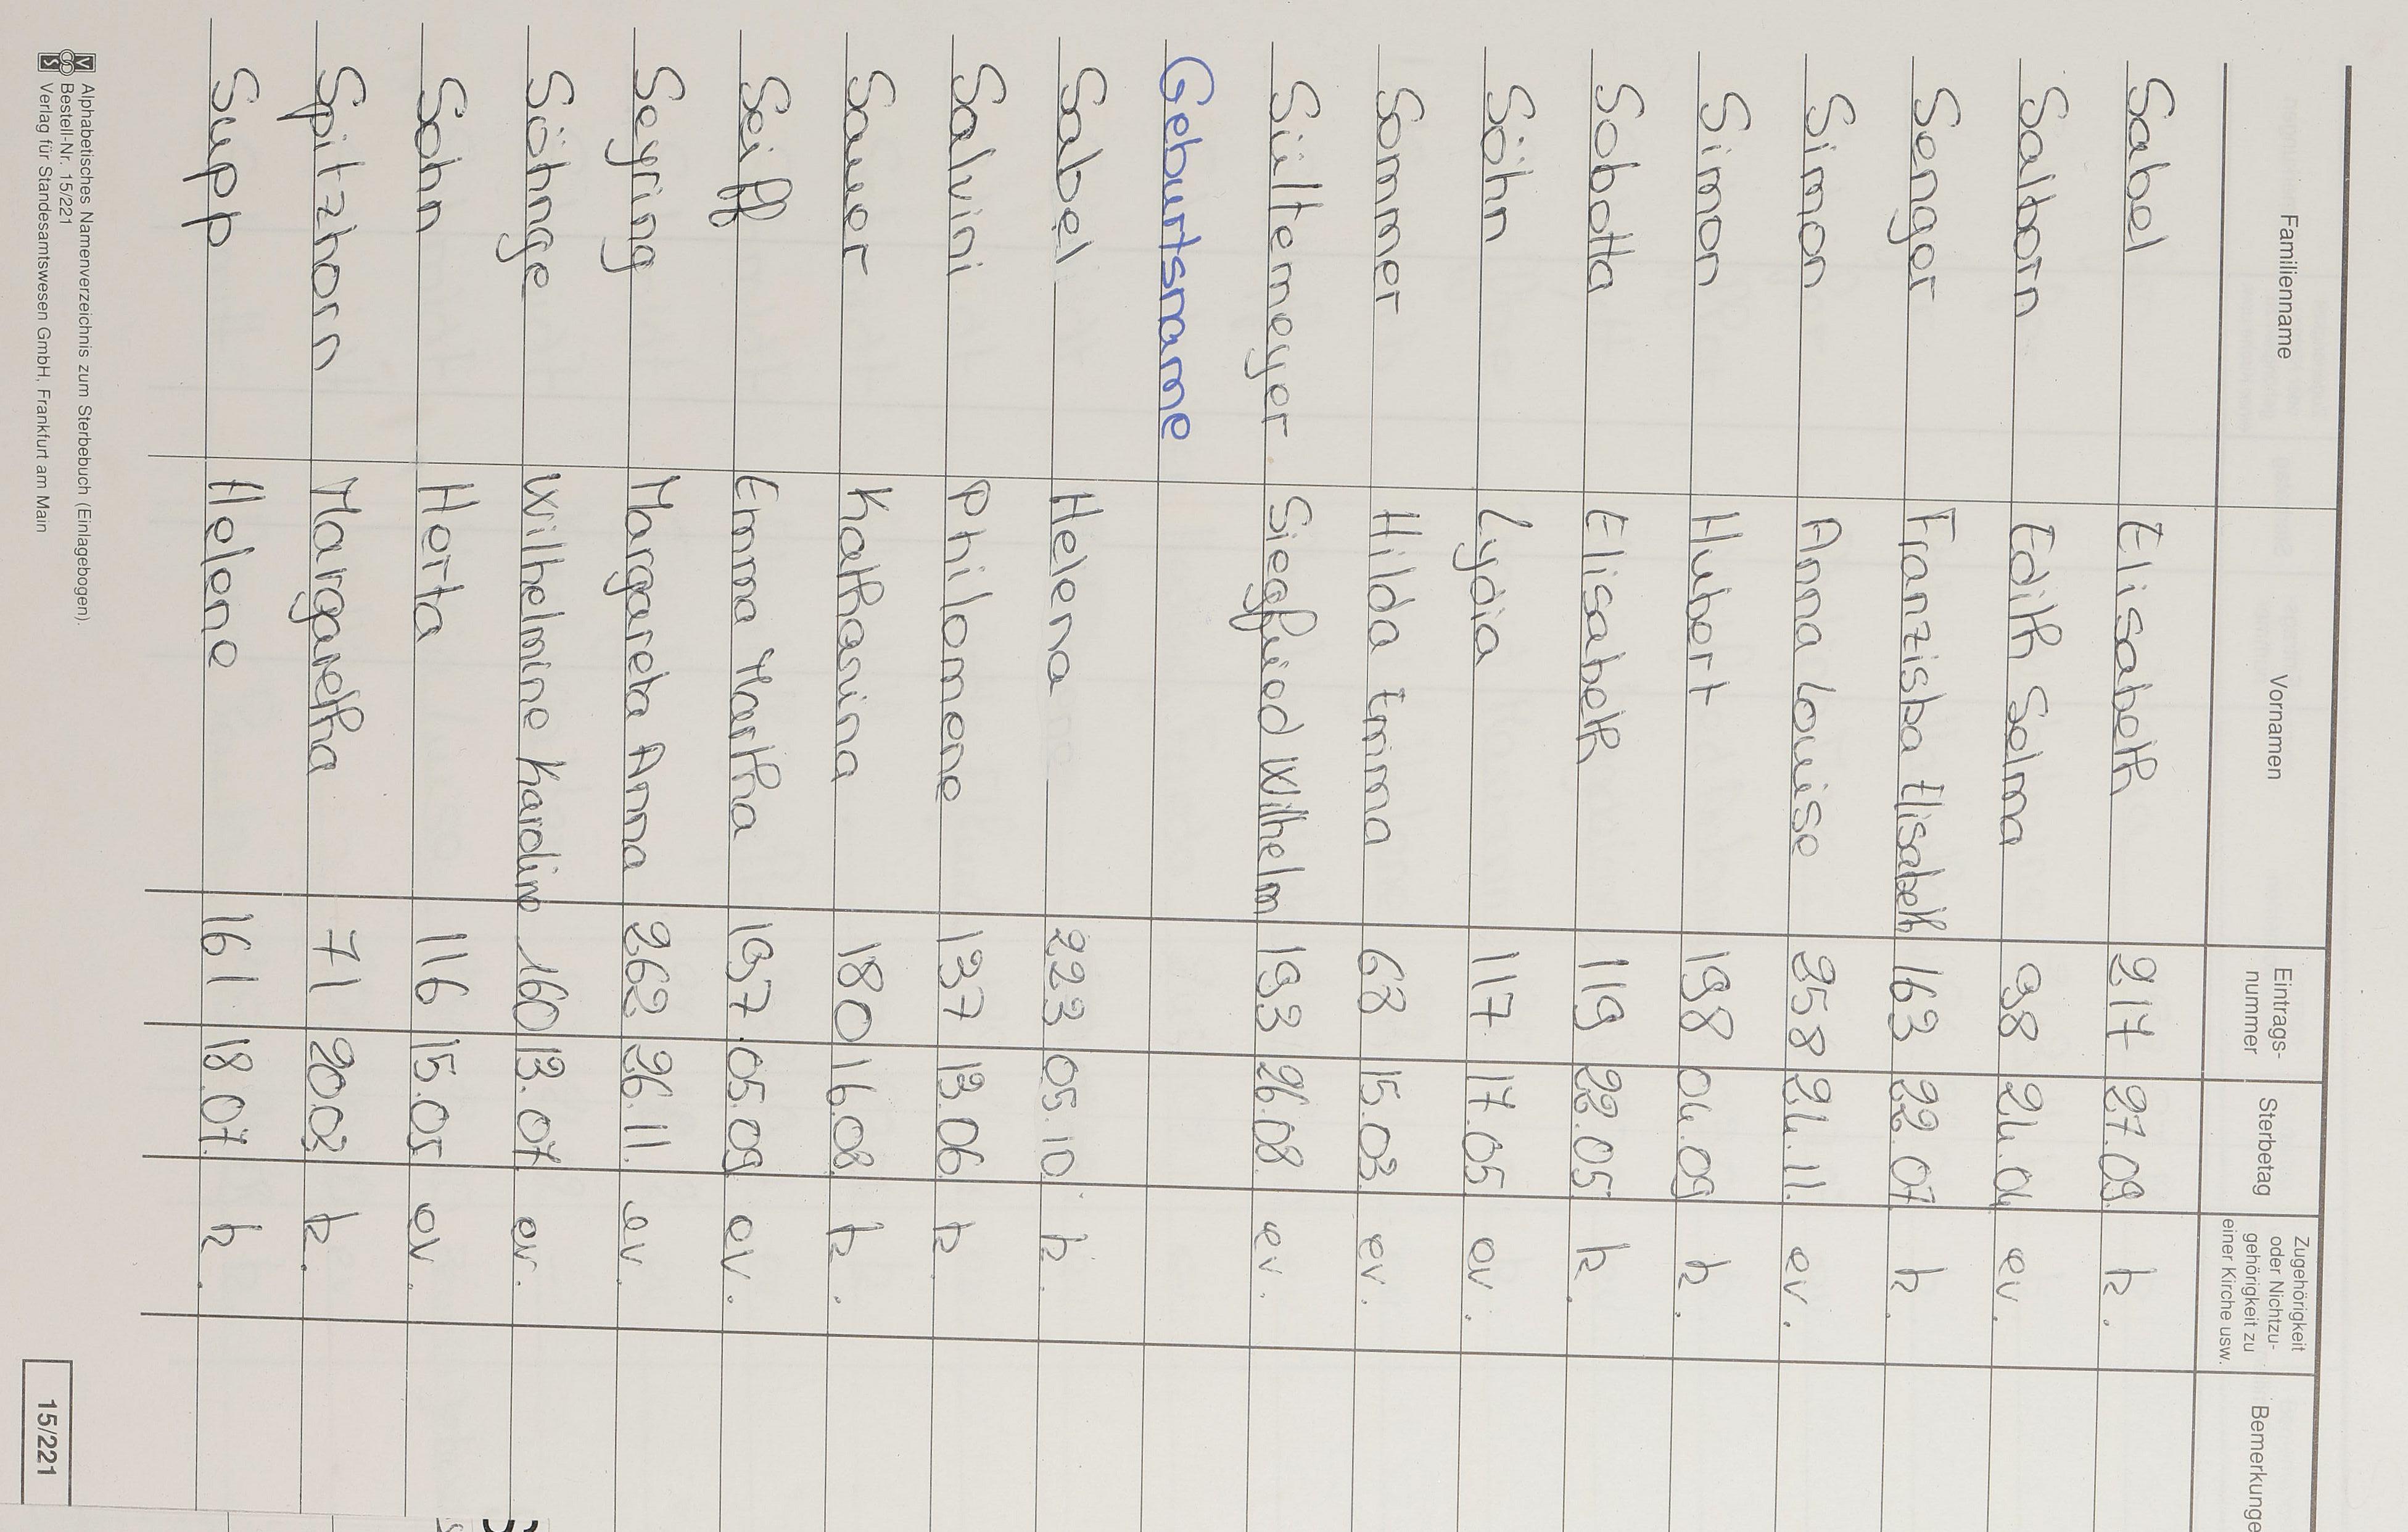 Familienname Vornamen Eintrags-nummer Sterbetag Zugehörigkeit oder Nichtzu-gehörigkeit zu einer Kirche usw. Bemerkunge
Sabel Elisabeth 217 27.09. k.
Salborn Edith Selma 98 24.04. ev.
Senger Franziska Elisabeth 163 22.07. k.
Simon Anna Louise 258 24.11. ev.
Simon Hubert 198 04.09. k.
Sobotta Elisabeth 119 22.05. k.
Söhn Lydia 117 17.05. ev.
Sommer Hilda Emma 68 15.03. ev.
Sültemeyer Siegfried Wilhelm 193 26.08. ev.
Geburtsname
Sabel Helena 223 05.10. k.
Salvini Philomene 137 13.06. k.
Sauer Katharina 180 16.08. k.
Seiff Emma Martha 197 05.09. ev.
Seyring Margareta Anna 262 26.11. ev.
Söhnge Wilhelmine Karoline 160 13.07. ev.
Sohn Herta 116 15.05. ev.
Spitzhorn Margaretha 71 20.03. k.
Supp Helene 161 18.07. k.
Alphabetisches Namenverzeichnis zum Sterbebuch (Einlagebogen).
Bestell-Nr. 15/221
Verlag für Standesamtswesen GmbH, Frankfurt am Main
15/221